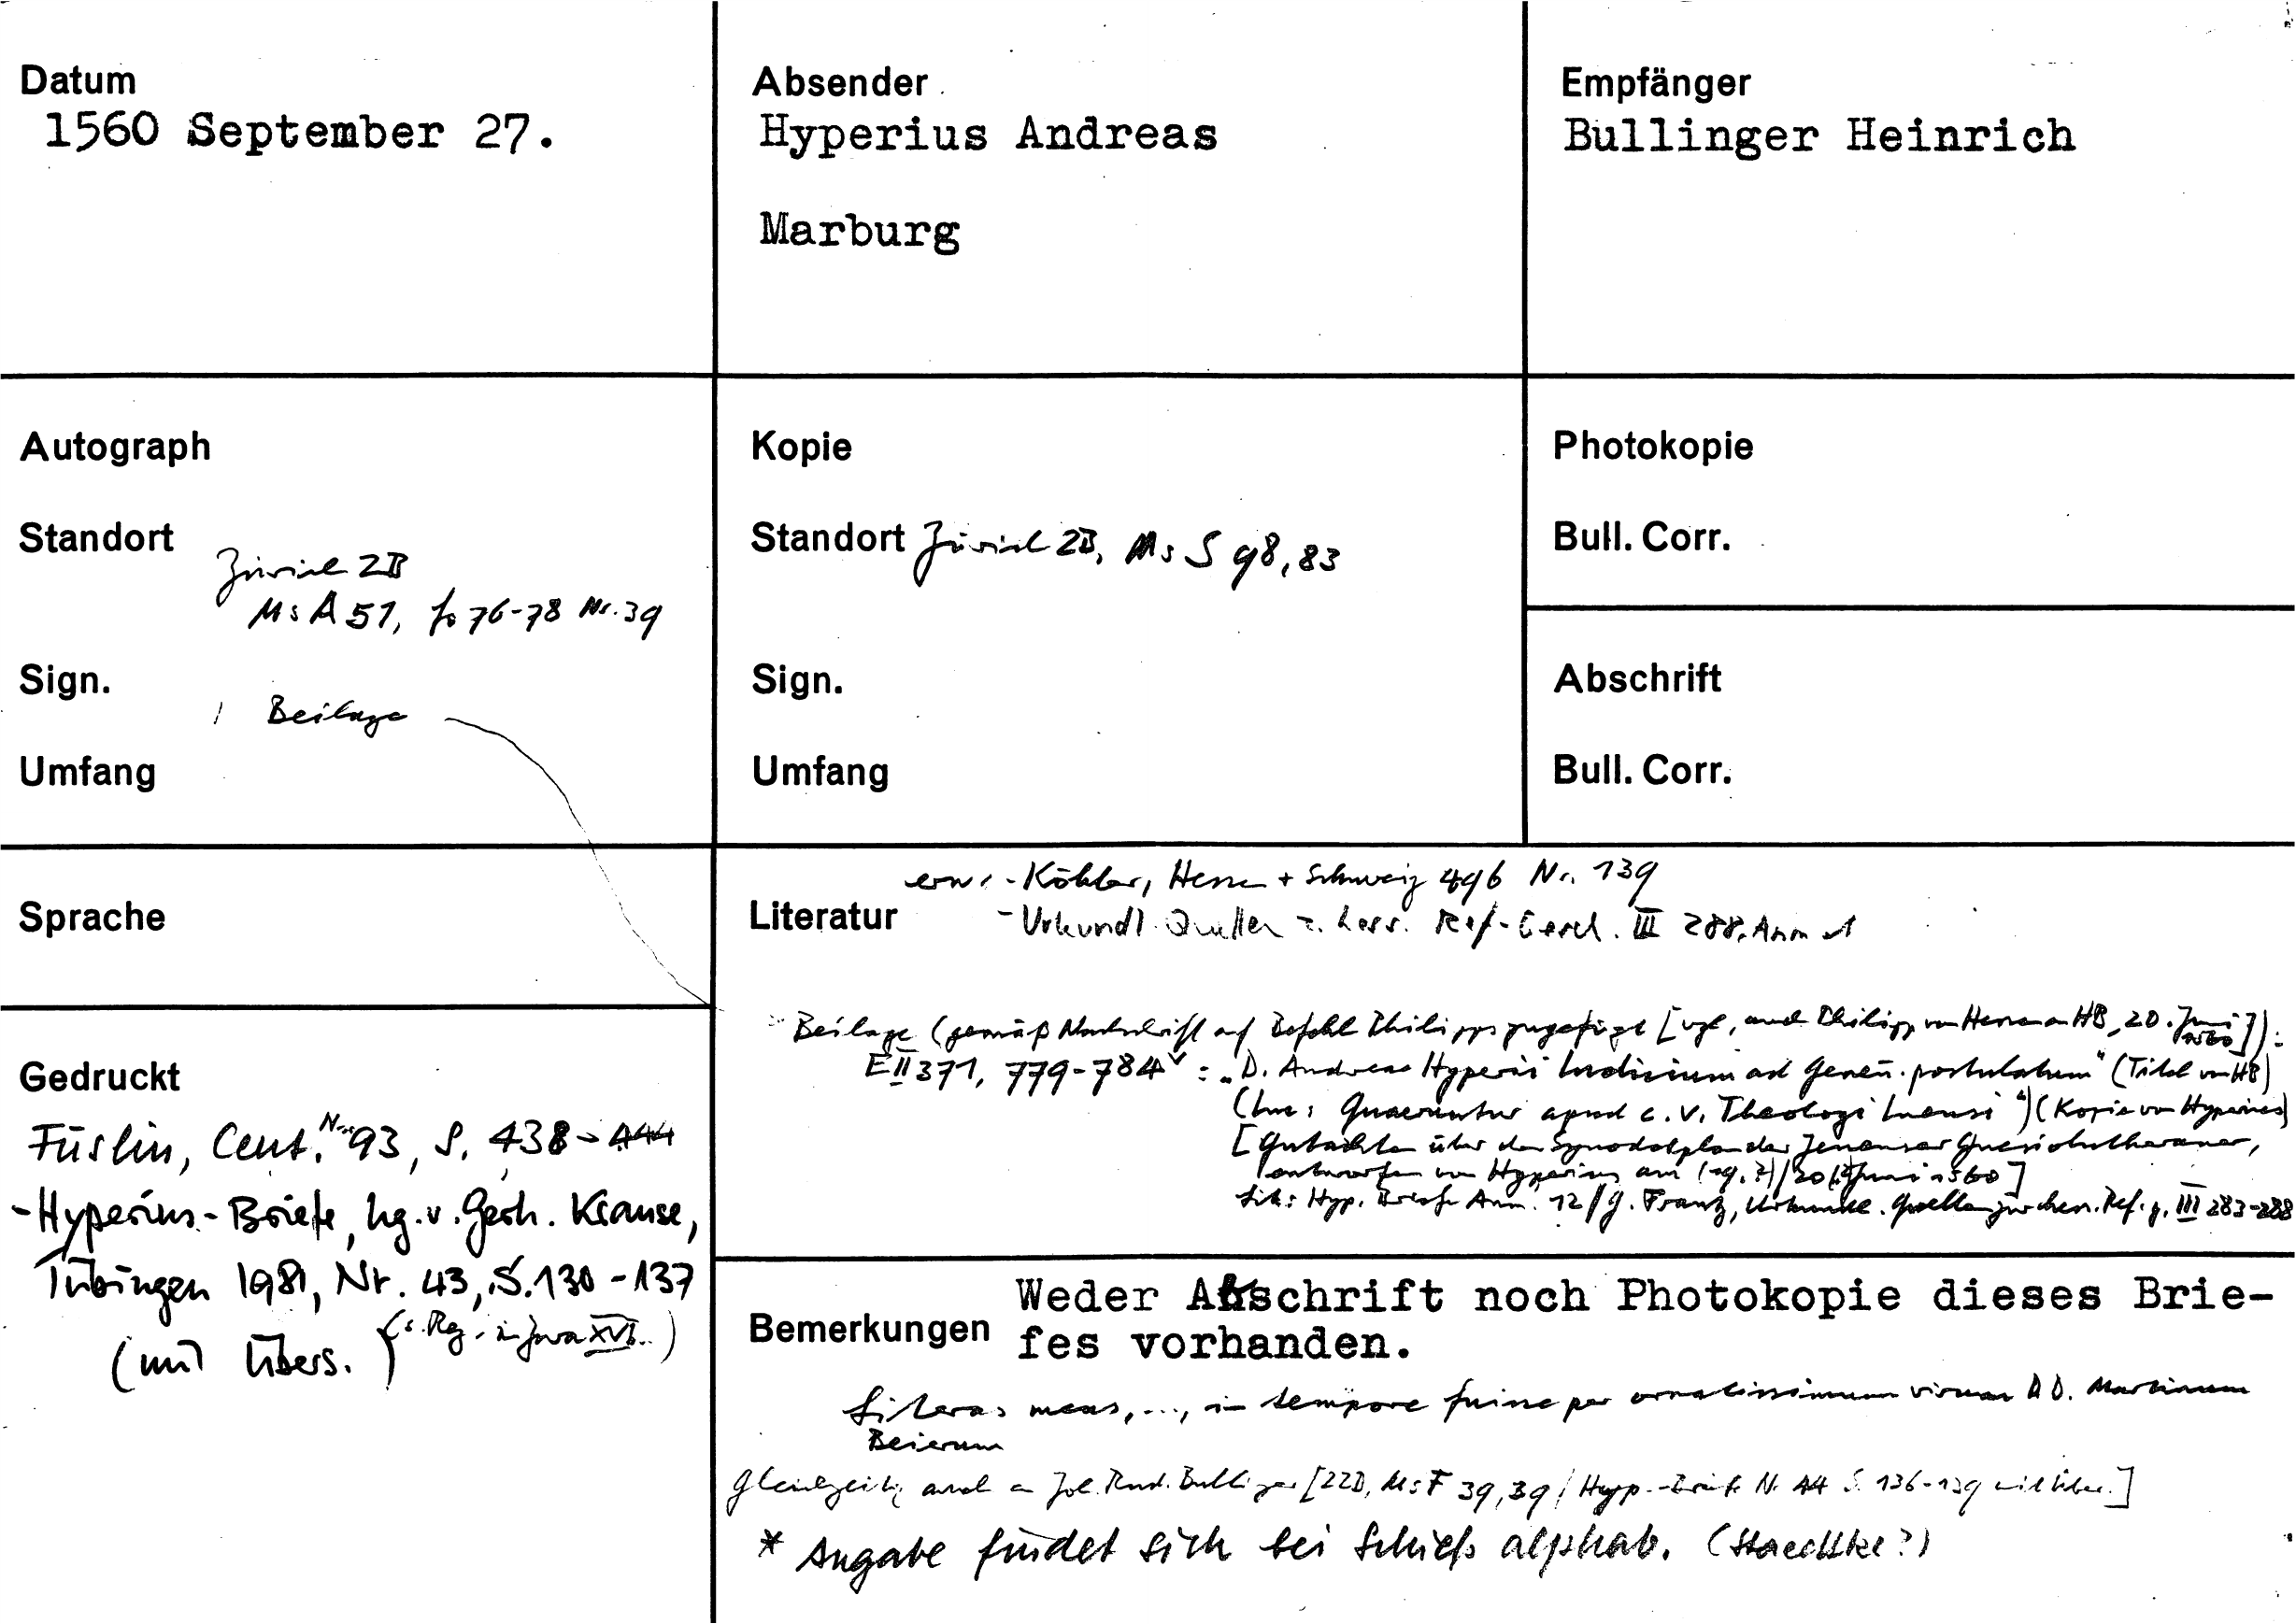 Datum
1560 September 27.
Absender
Hyperius Andreas
Marburg
Empfänger
Bullinger Heinrich
Autograph
Standort
Zürich ZB
Ms A 51, fo 76-78 Nr. 39
Sign.
1 Beilage
Umfang
Kopie
Standort Zürich ZB, Ms S 98, 83
Sign.
Umfang
Photokopie
Bull. Corr.
Abschrift
Bull. Corr.
Sprache
Gedruckt
Füslin, Cent. Nr. 93, S. 438-444
-Hyperius-Briefe, hg. v. Gerh. Krause,
Tübingen 1981, Nr. 43, S. 130-137
(mit Übers.
Literatur
erw. - Köhler, Hessen + Schweiz 496 Nr. 139
- Urkundl. Quellen z. hess. Ref-Gesch. III 288, Anm 1
Beilage (gemäß Nachschrift auf Befehl Philipps zugefügt [vgl. auch Philipp von Hessen an HB, 20. Juni 1560]):
E II 371, 779-784v: "D. Andreae Hyperii Iudicium ad Genen. postulatum" (Titel von HB)
(Inc: Quaeruntur apud c. v. Theologi) (Kopie von Hyperius)
[Gutachten über den Synodalplan der Jenenser Gnesiolutheraner,
entworfen von Hyperius am (19. ?)/20. Juni 1560]
Lit: Hyp. Briefe Anm. 12 / G. Franz, Urkundl. Quellen zur hess. Ref. g. III 283-288
Bemerkungen
Weder Abschrift noch Photokopie dieses Brie-
fes vorhanden.
Literas meas, ..., in tempore fuisse per ornatissimum virum D D. Martinum
Beierum
Gleichzeitig auch an Joh. Rud. Bullinger [ZZB, Ms F 39, 39 / Hyp.-Briefe Nr 44 S. 136-139 mit Über.]
* Angabe findet sich bei Schieß alphab. (Staedtke?)